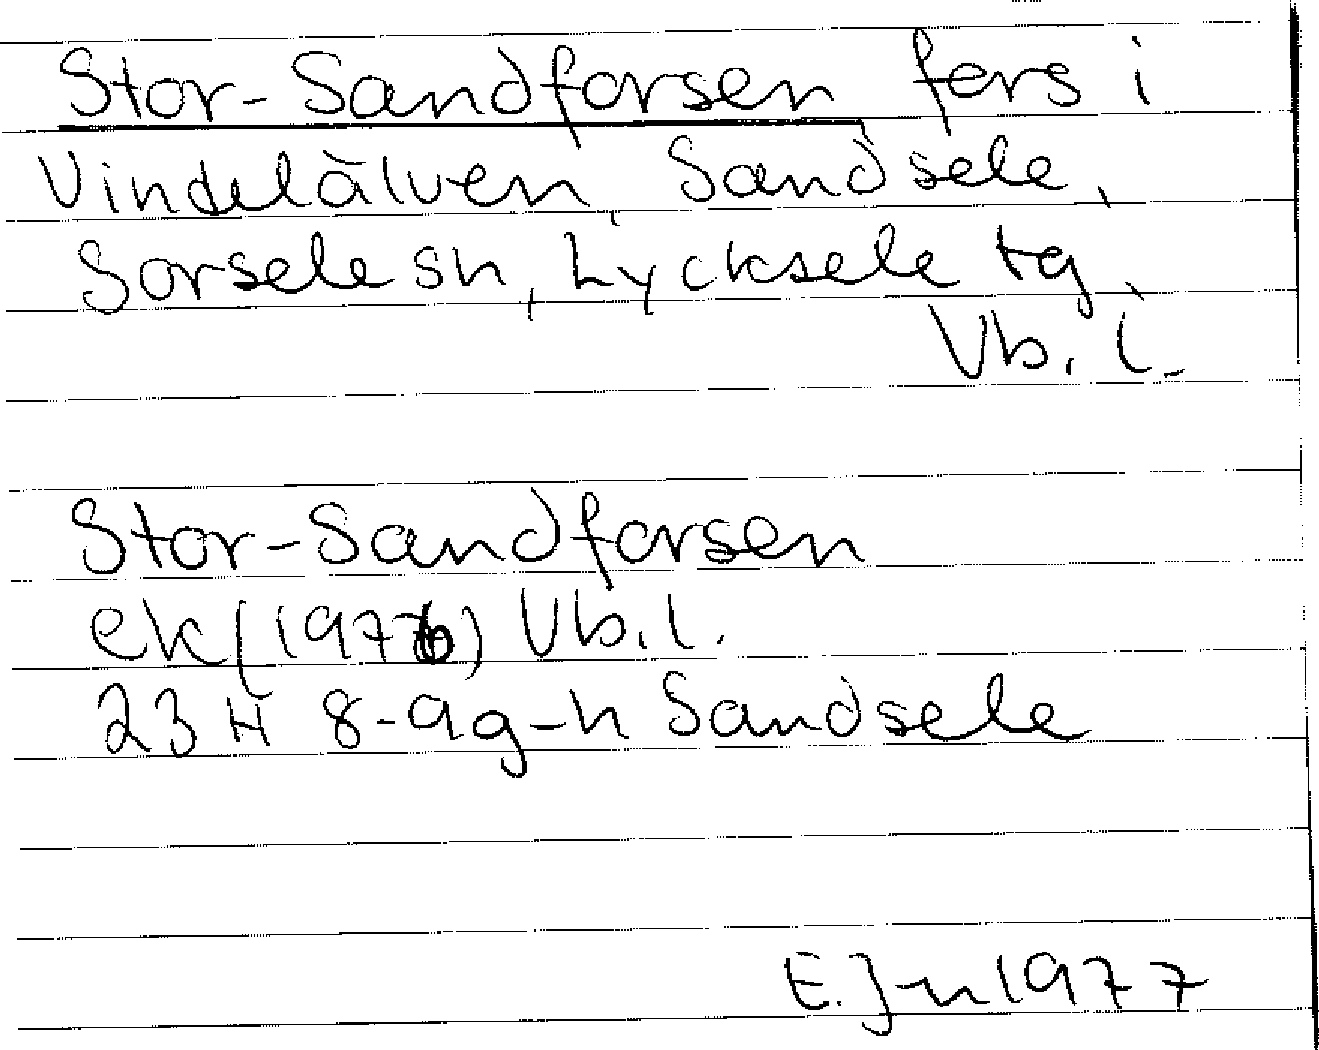 Stor-Sandforsen fors i
Vindelälven, Sandsele,
Sorsele sn, Lycksele tg,
Vb. l.
Stor-Sandforsen
ek (1976) Vb. l.
23 H 8-9 g-h Sandsele
E. Jn 1977